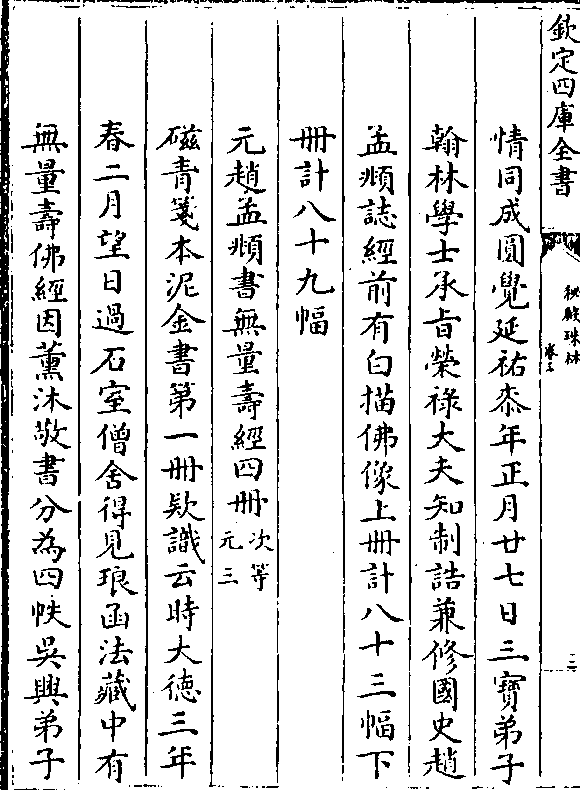 欽定四庫全書
秘殿珠林
卷三
情同成圓覺延祐柒年正月廿七日三寶弟子
翰林學士承旨榮祿大夫知制誥兼修國史趙
孟頫誌經前有白描佛像上冊計八十三幅下
冊計八十九幅
元趙孟頫書無量壽經四冊 次等
元三
磁青箋本泥金書第一冊欵識云時大德三年
春二月望日過石室僧舍得見琅函法藏中有
無量壽佛經因薰沐敬書分為四帙吳興弟子